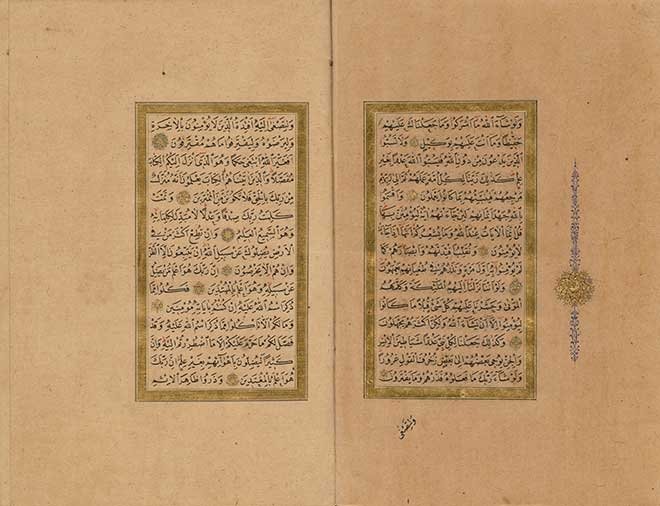 وَلَوْ شَآءَ اللّٰهُ مَا اَشْرَكُوا وَمَا جَعَلْنَاكَ عَلَيْهِمْ
حَفِيظًا وَمَا اَنْتَ عَلَيْهِمْ بِوَكِيلٍ وَلَا تَسُبُّوا
الَّذِينَ يَدْعُونَ مِنْ دُونِ اللّٰهِ فَيَسُبُّوا اللّٰهَ عَدْوًا بِغَيْرِ
عِلْمٍ كَذٰلِكَ زَيَّنَّا لِكُلِّ اُمَّةٍ عَمَلَهُمْ ثُمَّ اِلٰى رَبِّهِمْ
مَرْجِعُهُمْ فَيُنَبِّئُهُمْ بِمَا كَانُوا يَعْمَلُونَ وَاَقْسَمُوا
بِاللّٰهِ جَهْدَ اَيْمَانِهِمْ لَئِنْ جَآءَتْهُمْ اٰيَةٌ لَيُؤْمِنُنَّ بِهَا
قُلْ اِنَّمَا الْاٰيَاتُ عِنْدَ اللّٰهِ وَمَا يُشْعِرُكُمْ اَنَّهَا اِذَا جَآءَتْ
لَا يُؤْمِنُونَ وَنُقَلِّبُ اَفْئِدَتَهُمْ وَاَبْصَارَهُمْ كَمَا
لَمْ يُؤْمِنُوا بِهِ اَوَّلَ مَرَّةٍ وَنَذَرُهُمْ فِي طُغْيَانِهِمْ يَعْمَهُونَ
وَلَوْ اَنَّنَا نَزَّلْنَا اِلَيْهِمُ الْمَلٰٓئِكَةَ وَكَلَّمَهُمُ
الْمَوْتٰى وَحَشَرْنَا عَلَيْهِمْ كُلَّ شَيْءٍ قُبُلًا مَا كَانُوا
لِيُؤْمِنُوا اِلَّا اَنْ يَشَآءَ اللّٰهُ وَلٰكِنَّ اَكْثَرَهُمْ يَجْهَلُونَ
وَكَذٰلِكَ جَعَلْنَا لِكُلِّ نَبِيٍّ عَدُوًّا شَيَاطِينَ الْاِنْسِ
وَالْجِنِّ يُوحِي بَعْضُهُمْ اِلٰى بَعْضٍ زُخْرُفَ الْقَوْلِ غُرُورًا
وَلَوْ شَآءَ رَبُّكَ مَا فَعَلُوهُ فَذَرْهُمْ وَمَا يَفْتَرُونَ
وَلِتَصْغٰى
وَلِتَصْغٰى اِلَيْهِ اَفْئِدَةُ الَّذِينَ لَا يُؤْمِنُونَ بِالْاٰخِرَةِ
وَلِيَرْضَوْهُ وَلِيَقْتَرِفُوا مَا هُمْ مُقْتَرِفُونَ
اَفَغَيْرَ اللّٰهِ اَبْتَغِي حَكَمًا وَهُوَ الَّذِي اَنْزَلَ اِلَيْكُمُ الْكِتَابَ
مُفَصَّلًا وَالَّذِينَ اٰتَيْنَاهُمُ الْكِتَابَ يَعْلَمُونَ اَنَّهُ مُنَزَّلٌ
مِنْ رَبِّكَ بِالْحَقِّ فَلَا تَكُونَنَّ مِنَ الْمُمْتَرِينَ وَتَمَّتْ
كَلِمَتُ رَبِّكَ صِدْقًا وَعَدْلًا لَا مُبَدِّلَ لِكَلِمَاتِهِ
وَهُوَ السَّمِيعُ الْعَلِيمُ وَاِنْ تُطِعْ اَكْثَرَ مَنْ فِي
الْاَرْضِ يُضِلُّوكَ عَنْ سَبِيلِ اللّٰهِ اِنْ يَتَّبِعُونَ اِلَّا الظَّنَّ
وَاِنْ هُمْ اِلَّا يَخْرُصُونَ اِنَّ رَبَّكَ هُوَ اَعْلَمُ مَنْ يَضِلُّ
عَنْ سَبِيلِهِ وَهُوَ اَعْلَمُ بِالْمُهْتَدِينَ فَكُلُوا مِمَّا
ذُكِرَ اسْمُ اللّٰهِ عَلَيْهِ اِنْ كُنْتُمْ بِاٰيَاتِهِ مُؤْمِنِينَ
وَمَا لَكُمْ اَلَّا تَأْكُلُوا مِمَّا ذُكِرَ اسْمُ اللّٰهِ عَلَيْهِ وَقَدْ
فَصَّلَ لَكُمْ مَا حَرَّمَ عَلَيْكُمْ اِلَّا مَا اضْطُرِرْتُمْ اِلَيْهِ وَاِنَّ
كَثِيرًا لَيُضِلُّونَ بِاَهْوَآئِهِمْ بِغَيْرِ عِلْمٍ اِنَّ رَبَّكَ
هُوَ اَعْلَمُ بِالْمُعْتَدِينَ وَذَرُوا ظَاهِرَ الْاِثْمِ